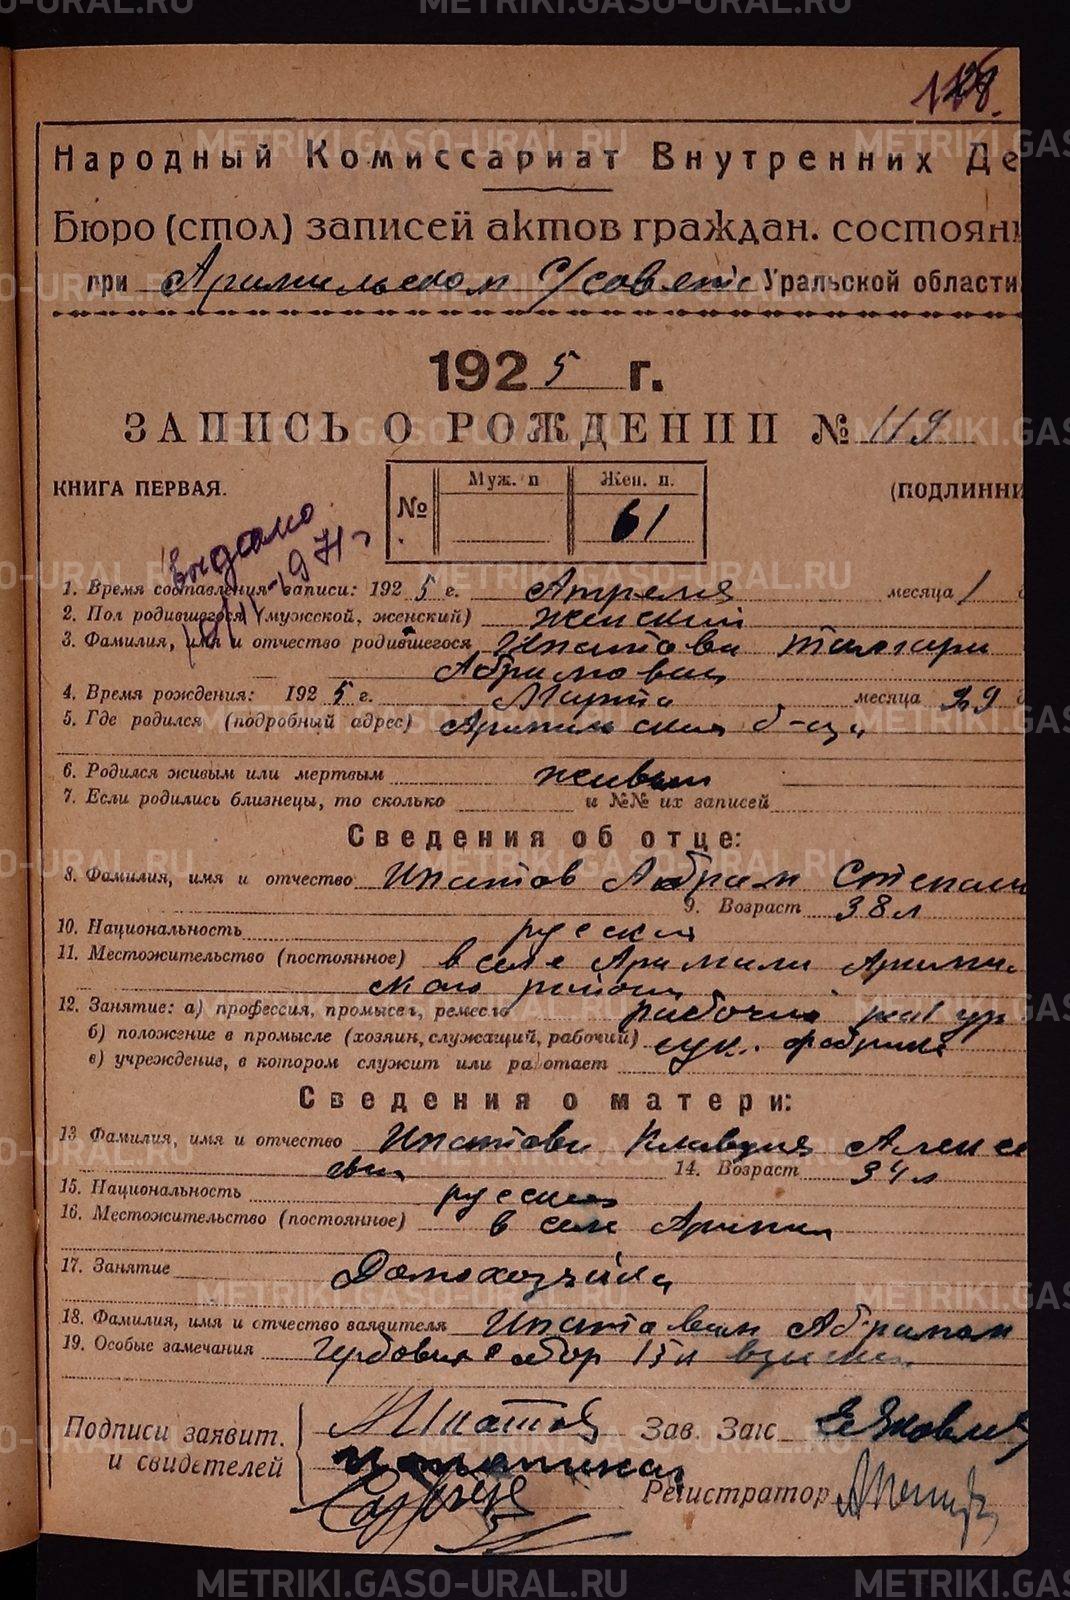 118.
Народный Комиссариат Внутренних Де
Бюро (стол) записей актов граждан. состоян
при Арамильском С/совете Уральской области
1925 г.
ЗАПИСЬ О РОЖДЕНИИ № 119
КНИГА ПЕРВАЯ.
№
Муж. п
Жен. п.
61
(ПОДЛИННИ
Выдано
1971 г
1. Время составления записи: 1925 г. Апреля месяца 1
2. Пол родившегося (мужской, женский) женский
3. Фамилия, имя и отчество родившегося Ипатова Тамара
Абрамовна
4. Время рождения: 1925 г. Марта месяца 29
5. Где родился (подробный адрес) Арамильская б-ца
6. Родился живым или мертвым живым
7. Если родились близнецы, то сколько и №№ их записей
Сведения об отце:
8. Фамилия, имя и отчество Ипатов Абрам Степан
9. Возраст 38 л
10. Национальность русский
11. Местожительство (постоянное) в селе Арамили Арамиль
ского района
12. Занятие: а) профессия, промысел, ремесло рабочий
б) положение в промысле (хозяин, служащий, рабочий) сук. фабрика
в) учреждение, в котором служит или работает
Сведения о матери:
13 Фамилия, имя и отчество Ипатова Клавдия Алексе
евна 14. Возраст 34 л
15. Национальность русская
16. Местожительство (постоянное) в селе Арамил
17. Занятие Домохозяйка
18. Фамилия, имя и отчество заявителя Ипатовым Абрамом
19. Особые замечания Гербовый сбор 15 к взыскан
Подписи заявит.
и свидетелей
АИпатов
Зав. Загс Яковлев
Регистратор
METRIKI.GASO-URAL.RU